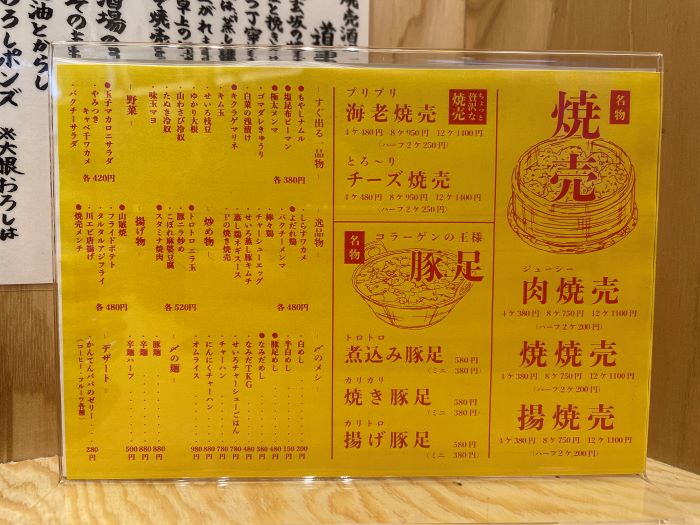 名物
焼売
ジューシー
肉焼売
4ケ380円 8ケ750円 12ケ1100円
(ハーフ2ケ200円)
焼焼売
4ケ380円 8ケ750円 12ケ1100円
(ハーフ2ケ200円)
揚焼売
4ケ380円 8ケ750円 12ケ1100円
(ハーフ2ケ200円)
ちょっと
贅沢な
焼売
プリプリ
海老焼売
4ケ480円 8ケ950円 12ケ1400円
(ハーフ2ケ250円)
とろ〜り
チーズ焼売
4ケ480円 8ケ950円 12ケ1400円
(ハーフ2ケ250円)
名物
コラーゲンの王様
豚足
トロトロ
煮込み豚足 580円
(ミニ 380円)
カリカリ
焼き豚足 580円
(ミニ 380円)
カリトロ
揚げ豚足 580円
(ミニ 380円)
すぐ出る一品物
●もやしナムル
●塩昆布ピーマン
●極太メンマ
・ゴマダレきゅうり
・白菜の浅漬け
●キクラゲマリネ
・キム玉
・せいろ枝豆
・ゆかり大根
・山わさび冷奴
・たぬき冷奴
・味玉マヨ
各380円
野菜
●玉子マカロニサラダ
・やみつき
キャベ千ワカメ
・パクチーサラダ
各420円
逸品物
・しらすワカメ
●よだれ鶏
・パクチーメンマ
・棒々鶏
・チャーシューエッグ
・せいろ蒸し豚キムチ
・蒸し鶏ネギソース
・Pの焼き焼売
各480円
炒め物
●トロトロニラ玉
・豚ニラ炒め
・こぼれ麻婆豆腐
●スタミナ焼肉
各520円
揚げ物
●山賊焼
・フライドポテト
・タルタルアジフライ
・川エビ唐揚げ
●焼売メンチ
各480円
〆のメシ
・白めし 200円
・半白めし 150円
●豚足めし 480円
●なみだめし 380円
・なみだTKG 480円
・せいろチャーシューごはん 780円
・チャーハン 780円
・にんにくチャーハン 880円
・オムライス 980円
〆の麺
・豚麺 880円
・辛麺 880円
・辛麺ハーフ 500円
デザート
・かんてんパパのゼリー 280円
(コーヒー・フルーツ各種)
焼売酒
道
酒場の
そのま
油とからし
わろしポンズ
※大根わろしは